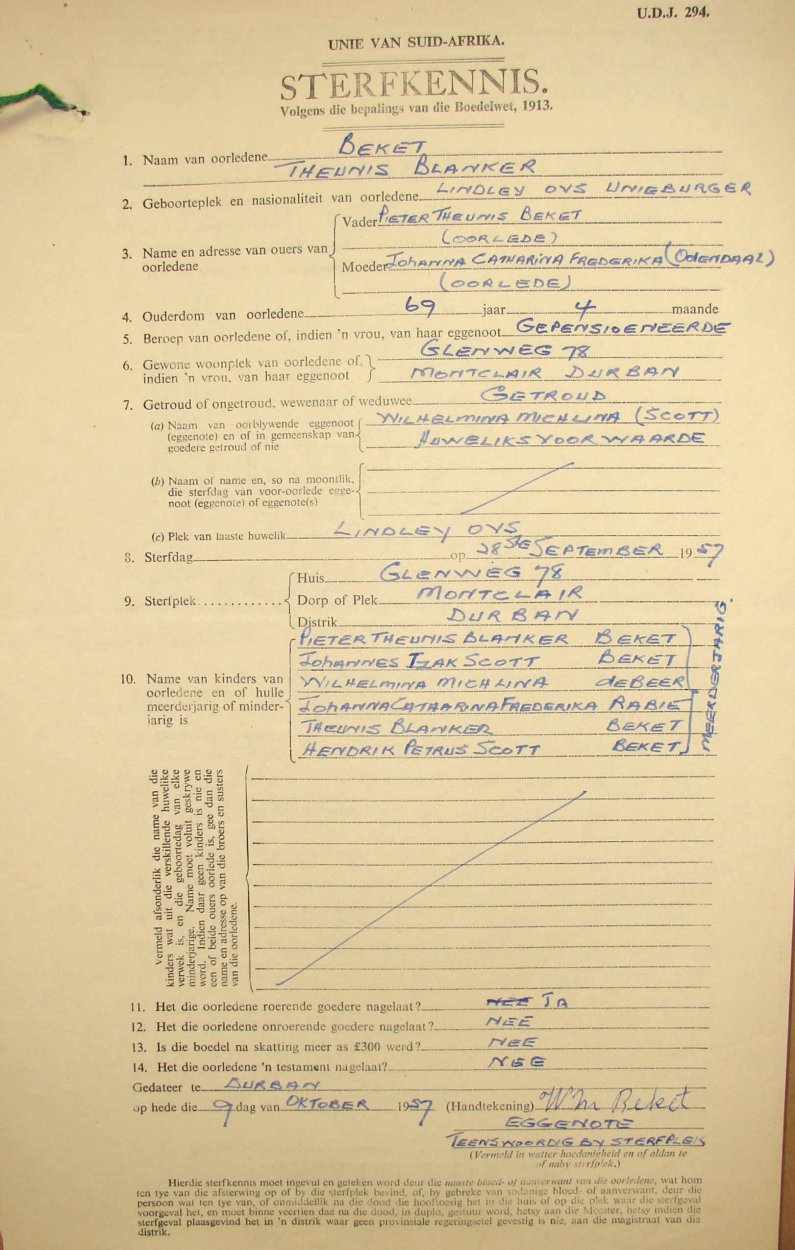 U.D.J. 294.
UNIE VAN SUID-AFRIKA.
STERFKENNIS.
Volgens die bepalings van die Boedelwet, 1913.
BEKET
1. Naam van oorledene THEUNIS BLANKER
2. Geboorteplek en nasionaliteit van oorledene LINDLEY OVS UNIEBURGER
3. Name en adresse van ouers van oorledene
Vader PIETER THEUNIS BEKET
(OORLEDE)
Moeder JOHANNA CATHARINA FREDERIKA (ODENDAAL)
(OORLEDE)
4. Ouderdom van oorledene 69 jaar 4 maande
5. Beroep van oorledene of, indien 'n vrou, van haar eggenoot GEPENSIOENEERDE
6. Gewone woonplek van oorledene of, GLENWEG 78
indien 'n vrou, van haar eggenoot MONTCLAIR DURBAN
7. Getroud of ongetroud, wewenaar of weduwee GETROUD
(a) Naam van oorblywende eggenoot WILHELMINA MICHLINA (SCOTT)
(eggenote) en of in gemeenskap van HUWELIKSVOORWAARDE
goedere getroud of nie
(b) Naam of name en, so na moontlik,
die sterfdag van voor-oorlede egge-
noot (eggenote) of eggenote(s)
(c) Plek van laaste huwelik LINDLEY OVS
8. Sterfdag op 28STE SEPTEMBER 1957
9. Sterfplek
Huis GLENWEG 78
Dorp of Plek MONTCLAIR
Distrik DURBAN
10. Name van kinders van
oorledene en of hulle
meerderjarig of minder-
jarig is
PIETER THEUNIS BLANKER BEKET
JOHANNES IZAK SCOTT BEKET
WILHELMINA MICHLINA DE BEER
JOHANNA CATHARINA FREDERIKA RABIE
THEUNIS BLANKER BEKET
HENDRIK PETRUS SCOTT BEKET
MEERDERJARIG.
Vermeld afsonderlik die name van die
kinders wat uit die verskillende huwelike
verwek is, en die geboortedag van elke
minderjarige. Name moet voluit geskrywe
word. Indien daar geen kinders is nie en
een of beide ouers oorlede is, gee dan die
name en adresse op van die broers en susters
van die oorledene.
11. Het die oorledene roerende goedere nagelaat? NEE JA
12. Het die oorledene onroerende goedere nagelaat? NEE
13. Is die boedel na skatting meer as £300 werd? NEE
14. Het die oorledene 'n testament nagelaat? NEE
Gedateer te DURBAN
op hede die 9 dag van OKTOBER 1957 (Handtekening) W M Beket
EGGENOTE
TEENSWOORDIG BY STERFPLEK
(Vermeld in watter hoedanigheid en of aldan te
of naby sterfplek.)
Hierdie sterfkennis moet ingevul en geteken word deur die naaste bloed- of aanverwant van die oorledene, wat hom
ten tye van die afsterwing op of by die sterfplek bevind, of, by gebreke van sodanige bloed- of aanverwant, deur die
persoon wat ten tye van, of onmiddellik na die dood die hooftoesig het in die huis of op die plek waar die sterfgeval
voorgeval het, en moet binne veertien dae na die dood, in duplo, gestuur word, hetsy aan die Meester, hetsy indien die
sterfgeval plaasgevind het in 'n distrik waar geen provinsiale regeringsetel gevestig is nie, aan die magistraat van die
distrik.